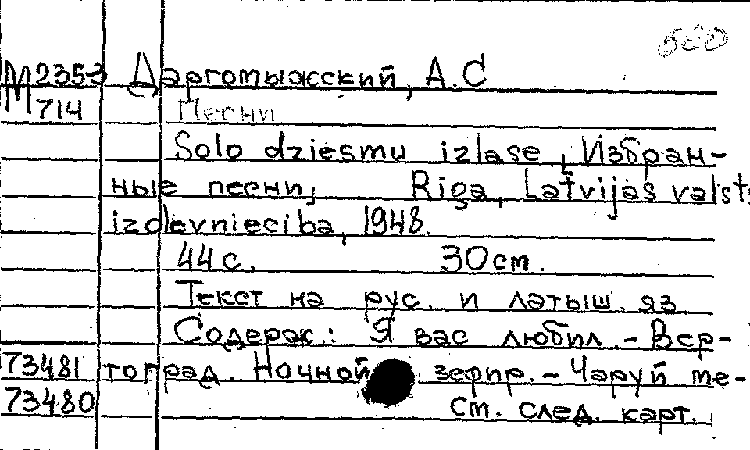 500
M2353 Даргомыжский, А.С
M714 Песни
Solo dziesmu izlase, Избран-
ные песни; Riga, Latvijas valsts
izdevnieciba, 1948.
44 с. 30 cm.
Текст на рус. и латыш. яз
Содерж.: Я вас любил. - Вер-
73481 тоград. Ночной зефир. - Чаруй ме-
73480 См. след. карт.